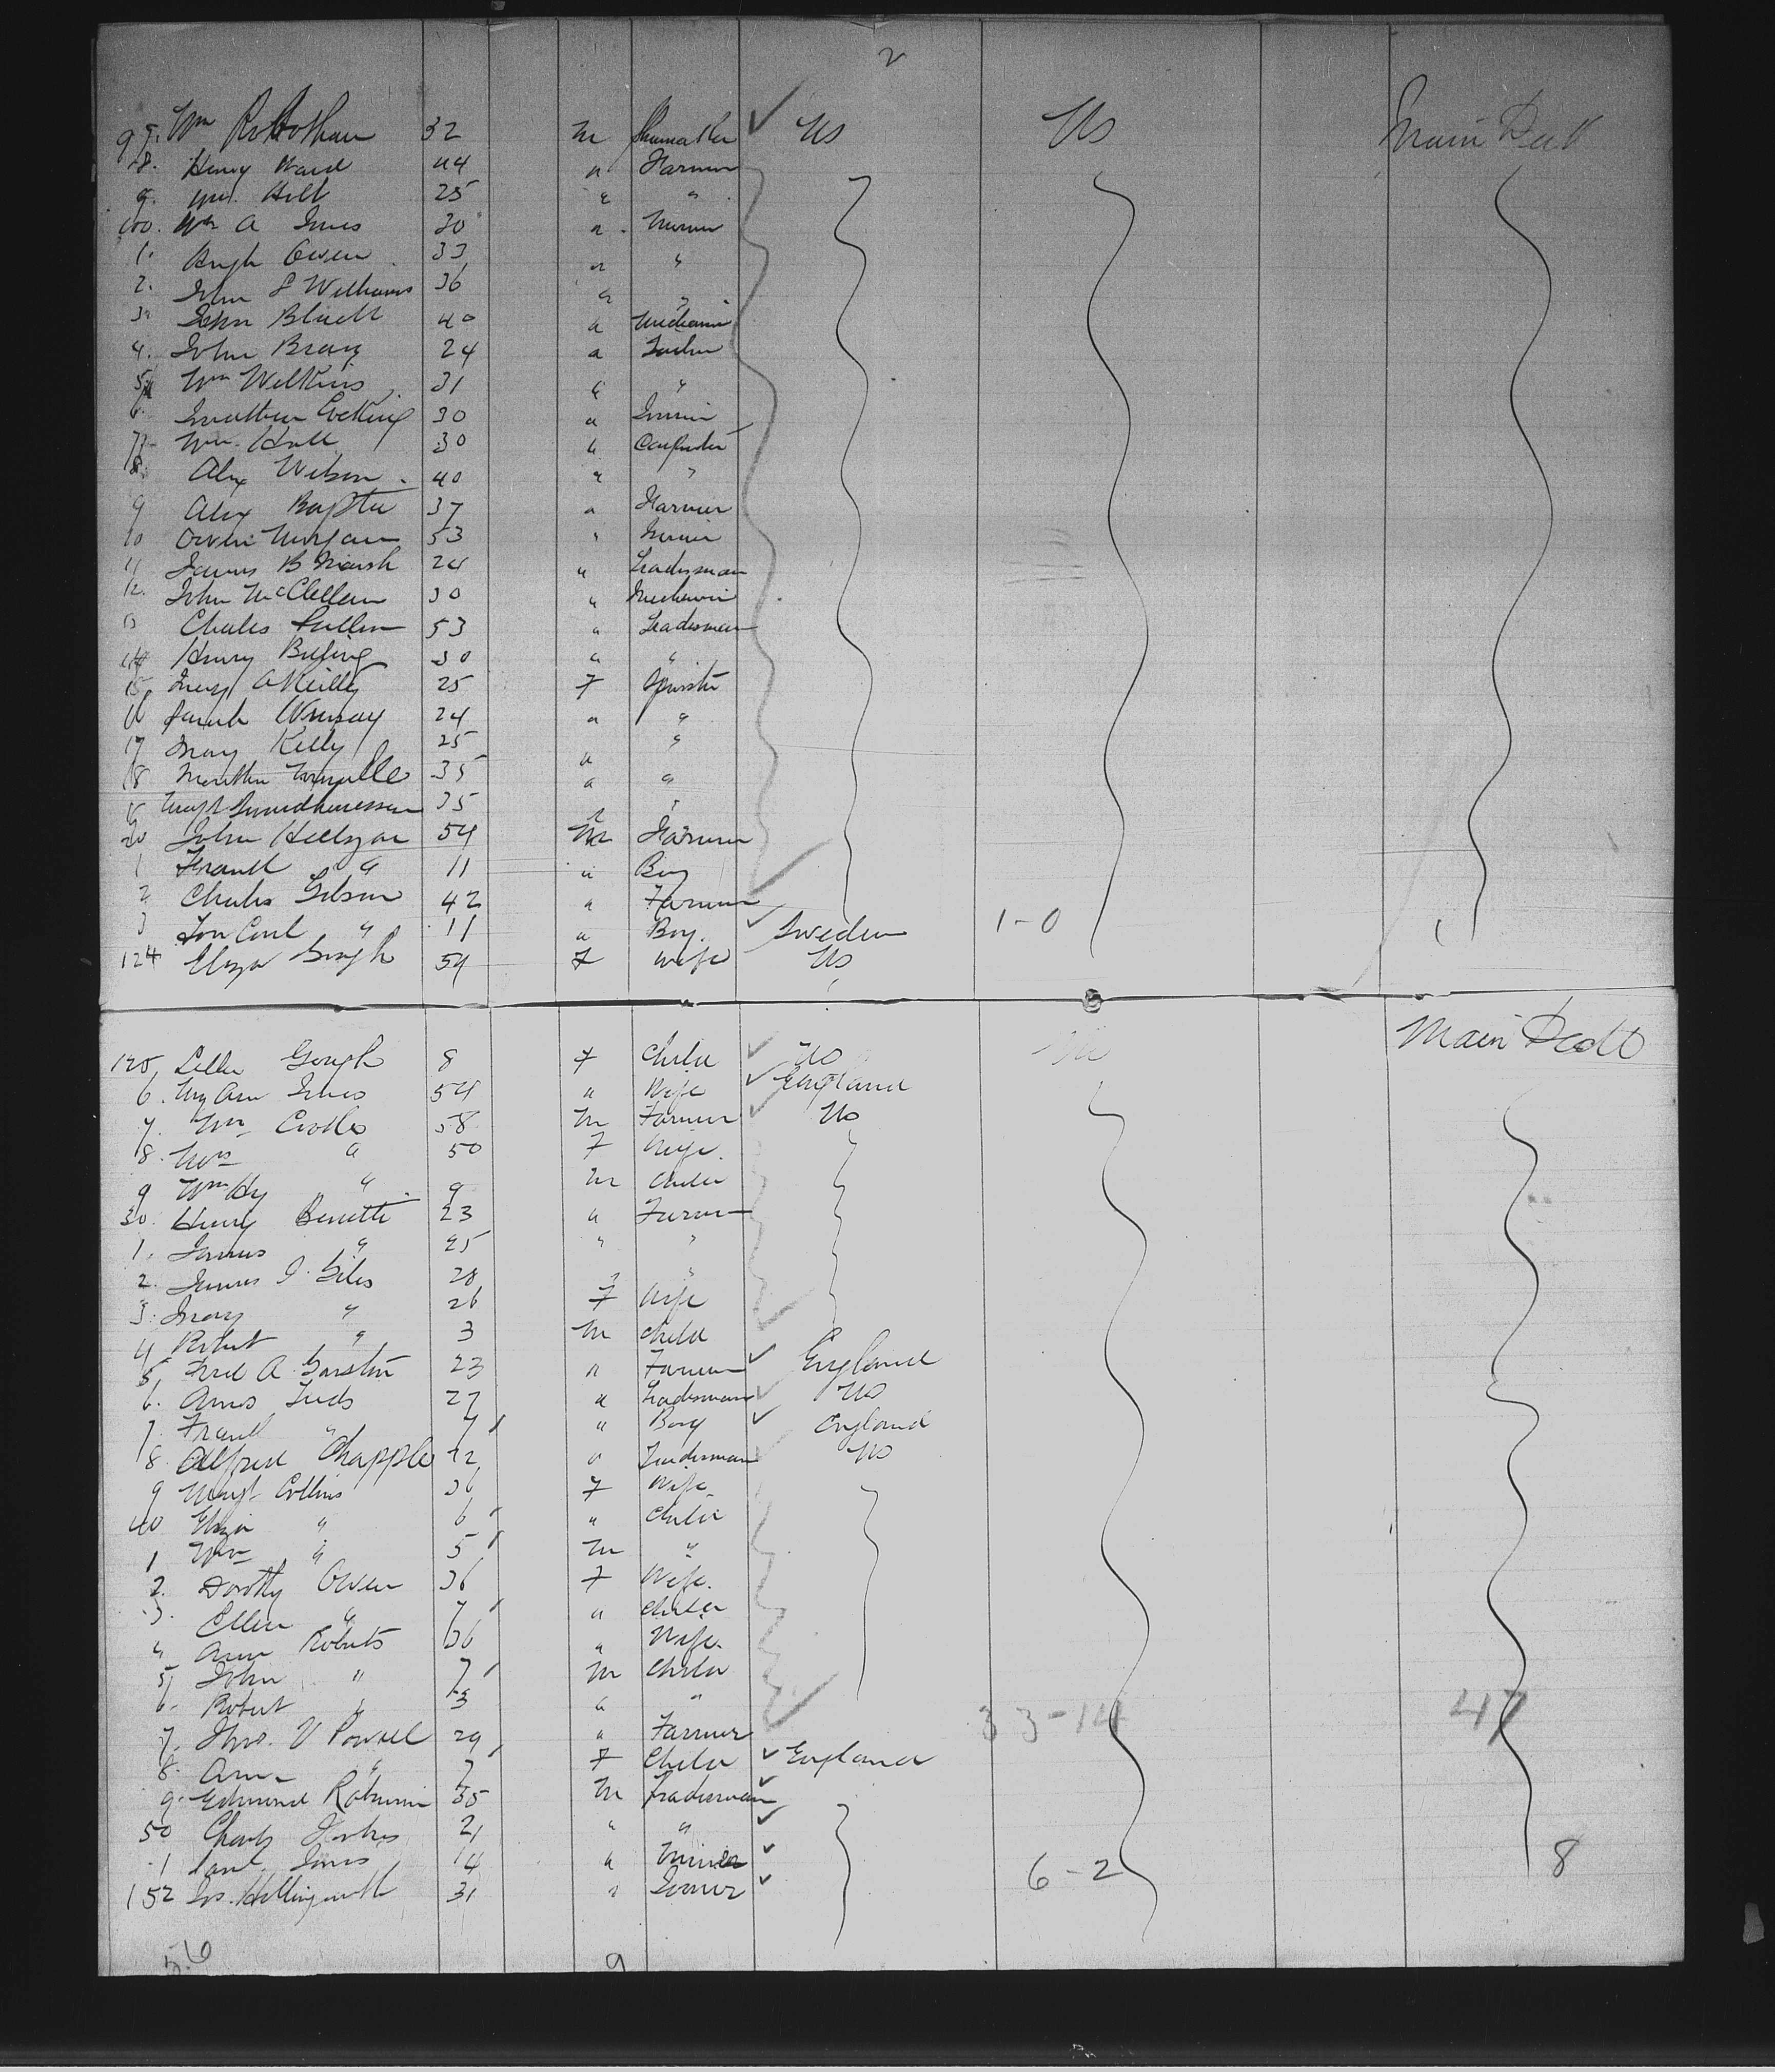 2
97. Wm Robotham 32 m Shumaker ✓ US US Main Deck
8. Henry Ward 44 " Farmer
9. Wm. Hill 25 " "
100. Wm A Jones 30 " Miner
1. Hugh Owen 33 " "
2. John S Williams 36 " "
3. John Black 40 " Mechanic
4. John Bray 24 "
5. Wm Wilkins 31 " "
6. Jonathan Cocking 30 " Miner
7. Wm. Hall 30 " Carpenter
8. Alex Wilson 40 " "
9 Alex 37 " Farmer
10 Owen Morgan 53 " Miner
11 James B Marsh 24 " Tradesman
12. John McClellan 30 " Mechanic
13 Charles Pullen 53 " Tradesman
14 Henry 30 " "
15, Mary O'Reilly 25 F Spinster
16 Sarah 24 " "
17 Mary Kelly 25 " "
18 Martha 35 " "
19 35 " "
20 John 54 m Farmer
1 Frank " 11 " Boy
2 Charles Gibson 42 " Farmer
3 " 11 " Boy. ✓ Sweden 1-0
124 Eliza Gough 54 F wife US
Main Deck
125, Gough 8 F Child ✓ US US
6. My Ann Jones 54 " Wife ✓ England
7. Wm 58 m Farmer ✓ US
8. Mrs " 50 F Wife.
9 Wm Hy " 9 m Child
30. Henry 23 " Farmer
1. James " 25 " "
2. James J. Giles 28 " "
3. Mary " 26 F Wife
4 Robert " 3 m Child
5, Fred A. 23 " Farmer ✓ England
6. 27 " Tradesman ✓ US
7. Frank " 7 " Boy ✓ England
8 Alfred Chapple 22 " Tradesman US
9 Margt Collins 36 F Wife
40 Eliza " 6 " Child
1 Wm " 5 m "
2. Dorothy Owen 36 F Wife.
3. Ellen " 7 " Child
4 Ann Roberts 36 " Wife.
5, John " 7 m Child
6. Robert " 3 " "
33-14 47
7. Thos. V Powell 29 " Farmer
8. Ann " 7 F Child ✓ England
9. Edmund Robinson 35 m Tradesman ✓
50 Charles 21 " " ✓
1 Saml. Jones 14 " Miner ✓
6-2 8
152 Jos. Hollingworth 31 " Joiner ✓
56
9